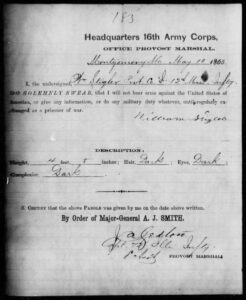 183
Headquarters 16th Army Corps,
OFFICE PROVOST MARSHAL,
Montgomery Ala May 10 1865
I, the undersigned, Wm Pvt Co. 12th Inf'ty
DO SOLEMNLY SWEAR, that I will not bear arms against the United States of
America, or give any information, or do any military duty whatever, until regularly ex-
changed as a prisoner of war.
William
DESCRIPTION:
Height, feet, inches; Hair, Dark; Eyes, Dark;
Complexion, Dark
I CERTIFY that the above PAROLE was given by me on the date above written.
By Order of Major-General A. J. SMITH.
PROVOST MARSHAL